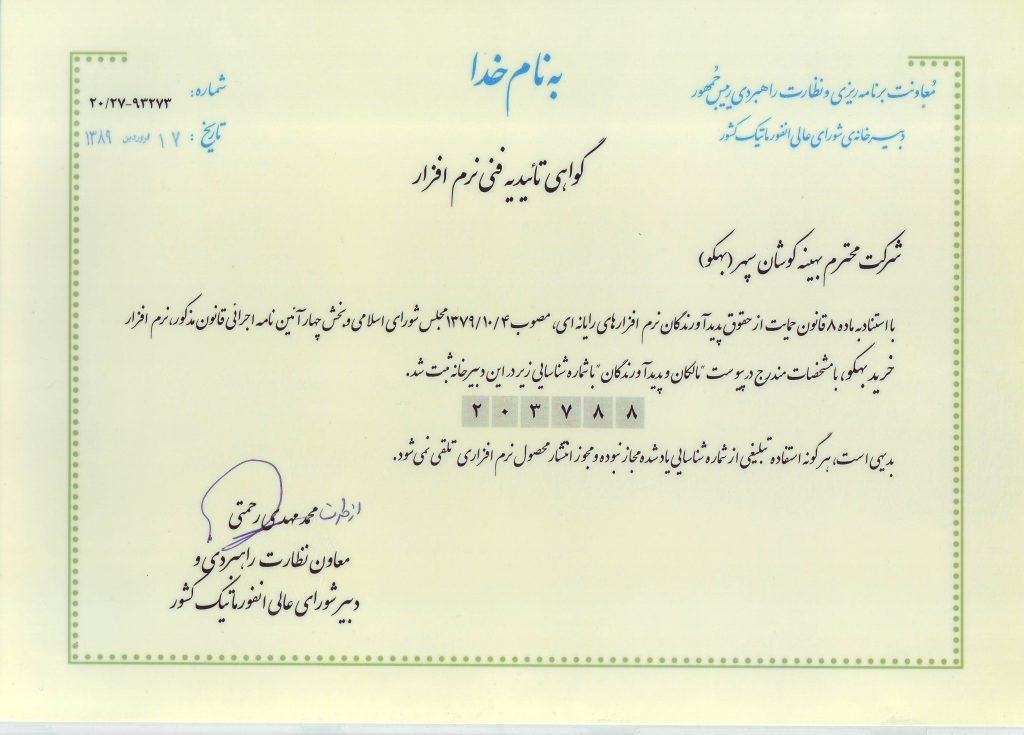 به نام خدا
معاونت برنامه‌ریزی و نظارت راهبردی رییس جمهور
دبیرخانه‌ی شورای عالی انفورماتیک کشور
شماره:
۲۰/۲۷-۹۳۲۷۳
تاریخ: ۱۷ فروردین ۱۳۸۹
گواهی تائیدیه فنی نرم افزار
شرکت محترم بهینه کوشان سپهر (بهکو)
با استناد به ماده ۸ قانون حمایت از حقوق پدیدآورندگان نرم افزارهای رایانه ای، مصوب ۱۳۷۹/۱۰/۴ مجلس شورای اسلامی و بخش چهار آئین نامه اجرائی قانون مذکور، نرم افزار
خرید بهکو، با مشخصات مندرج در پیوست "مالکان و پدیدآورندگان" با شماره شناسایی زیر در این دبیرخانه ثبت شد.
۲ ۰ ۳ ۷ ۸ ۸
بدیهی است، هرگونه استفاده تبلیغی از شماره شناسایی یاد شده مجاز نبوده و مجوز انتشار محصول نرم افزاری تلقی نمی شود.
از طرف محمد مهدی رحمتی
معاون نظارت راهبردی و
دبیر شورای عالی انفورماتیک کشور